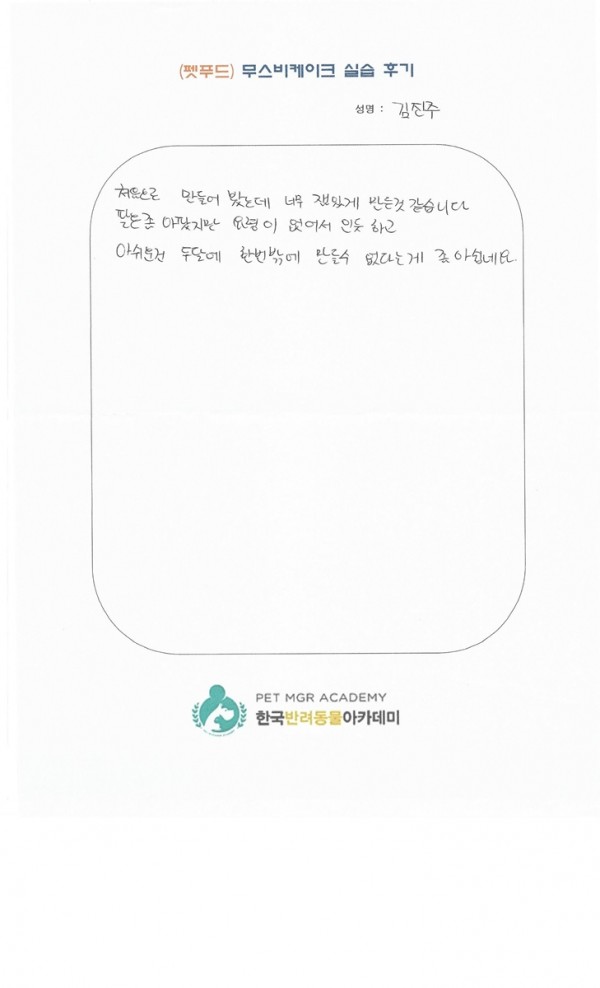 (펫푸드) 무스비케이크 실습 후기
성명 : 김진주
처음으로 만들어 봤는데 너무 잼있게 만든것 같습니다
팔는좀 아팠지만 요령이 없어서 인듯 하고
아쉬운건 두달에 한번밖에 만들수 없다는게 좀 아쉽네요.
PET MGR ACADEMY
한국반려동물아카데미